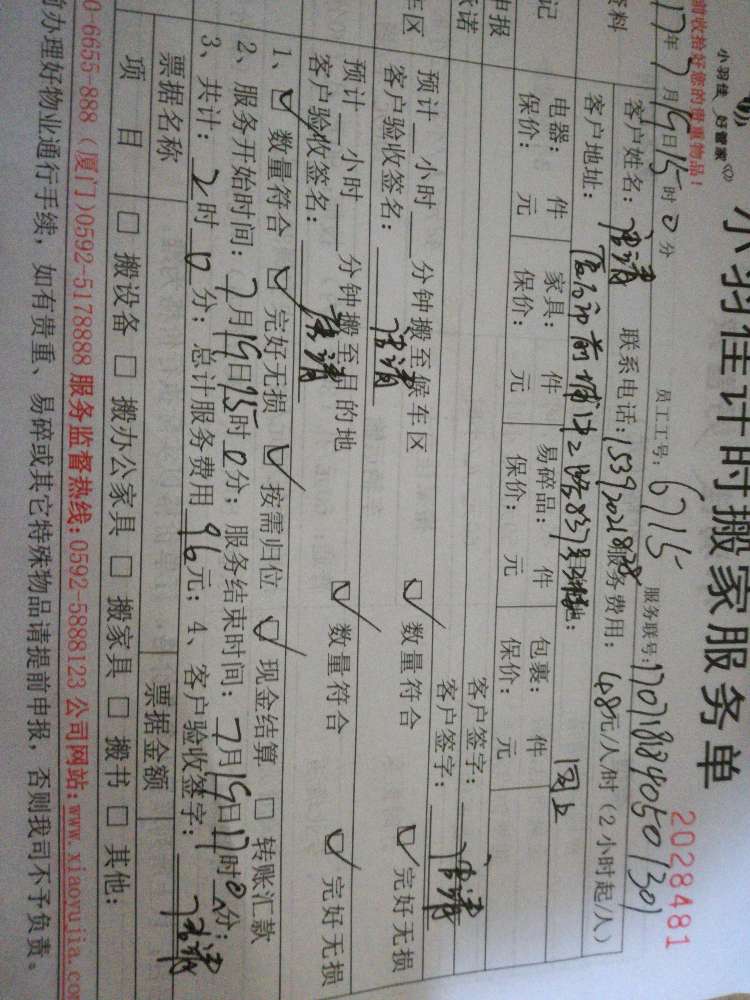 小羽佳 好管家
小羽佳计时搬家服务单
2028481
前收拾好您的贵重物品！
17年7月19日15时0分 员工工号：6715 服务联号：
资料
客户姓名： 联系电话： 服务费用：48元/人/时（2小时起/人）
客户地址： 同上
记
电器： 件 家具： 件 易碎品： 件 包裹： 件
保价： 元 保价： 元 保价： 元 保价： 元
申报
承诺
客户签字：
客户签字：
车区
预计 小时 分钟搬至候车区 数量符合 完好无损
客户验收签名：
预计 小时 分钟搬至目的地 数量符合 完好无损
客户验收签名：
1、 数量符合 完好无损 按需归位 现金结算 转账汇款
2、服务开始时间：7月19日15时0分；服务结束时间：7月19日17时0分；
3、共计：2时0分；总计服务费用96元；4、客户验收签字：
票据名称 票据金额
项目 □ 搬设备 □ 搬办公家具 □ 搬家具 □ 搬书 □ 其他：
0-6655-888（厦门）0592-5178888 服务监督热线：0592-5888123 公司网站：www.xiaoyujia.co
前办理好物业通行手续，如有贵重、易碎或其它特殊物品请提前申报，否则我司不予负责。